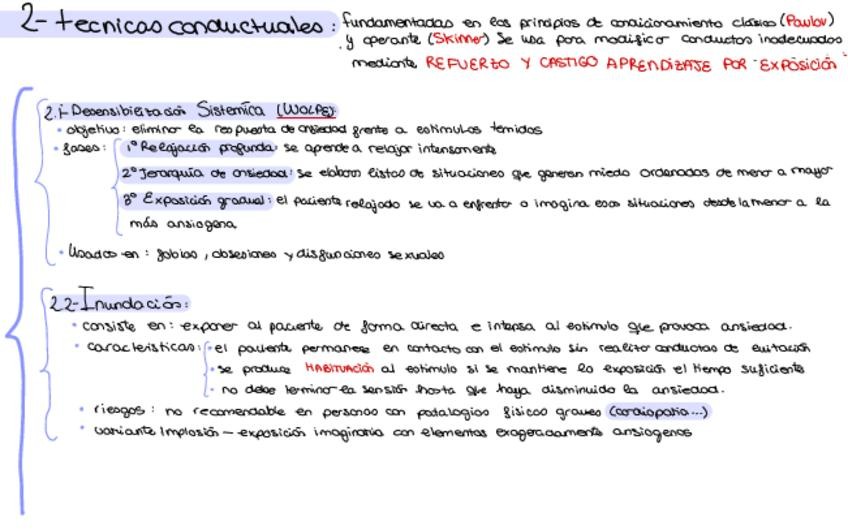 2- tecnicas conductuales: fundamentadas en los principios de condicionamiento clásico (Paulov)
y operante (Skinner) Se usa para modificar conductas inadecuadas
mediante REFUERZO Y CASTIGO APRENDIZAJE POR EXPOSICIÓN
2.1- Desensibilización Sistemica (WOLPE)
• objetivo: eliminar la respuesta de ansiedad frente a estimulos temidos
• fases: 1º Relajación profunda: se aprende a relajar intensamente
2º Jerarquía de ansiedad: se elaboran listas de situaciones que generen miedo ordenadas de menor a mayor
3º Exposición gradual: el paciente relajado se va a enfrentar o imagina esas situaciones desde la menor a la
más ansiogena
• Usadas en: fobias, obsesiones y disfunciones sexuales
2.2- Inundación:
• consiste en: exponer al paciente de forma directa e intensa al estimulo que provoca ansiedad.
• caracteristicas: - el paciente permanece en contacto con el estimulo sin realizar conductas de evitación
• se produce HABITUACIÓN al estimulo si se mantiene la exposición el tiempo suficiente
• no debe terminar la sensión hasta que haya disminuido la ansiedad.
• riesgos: no recomendable en personas con patalogias físicas graves (cardiopatia...)
• variante Implosión - exposición imaginaria con elementos exageradamente ansiogenos